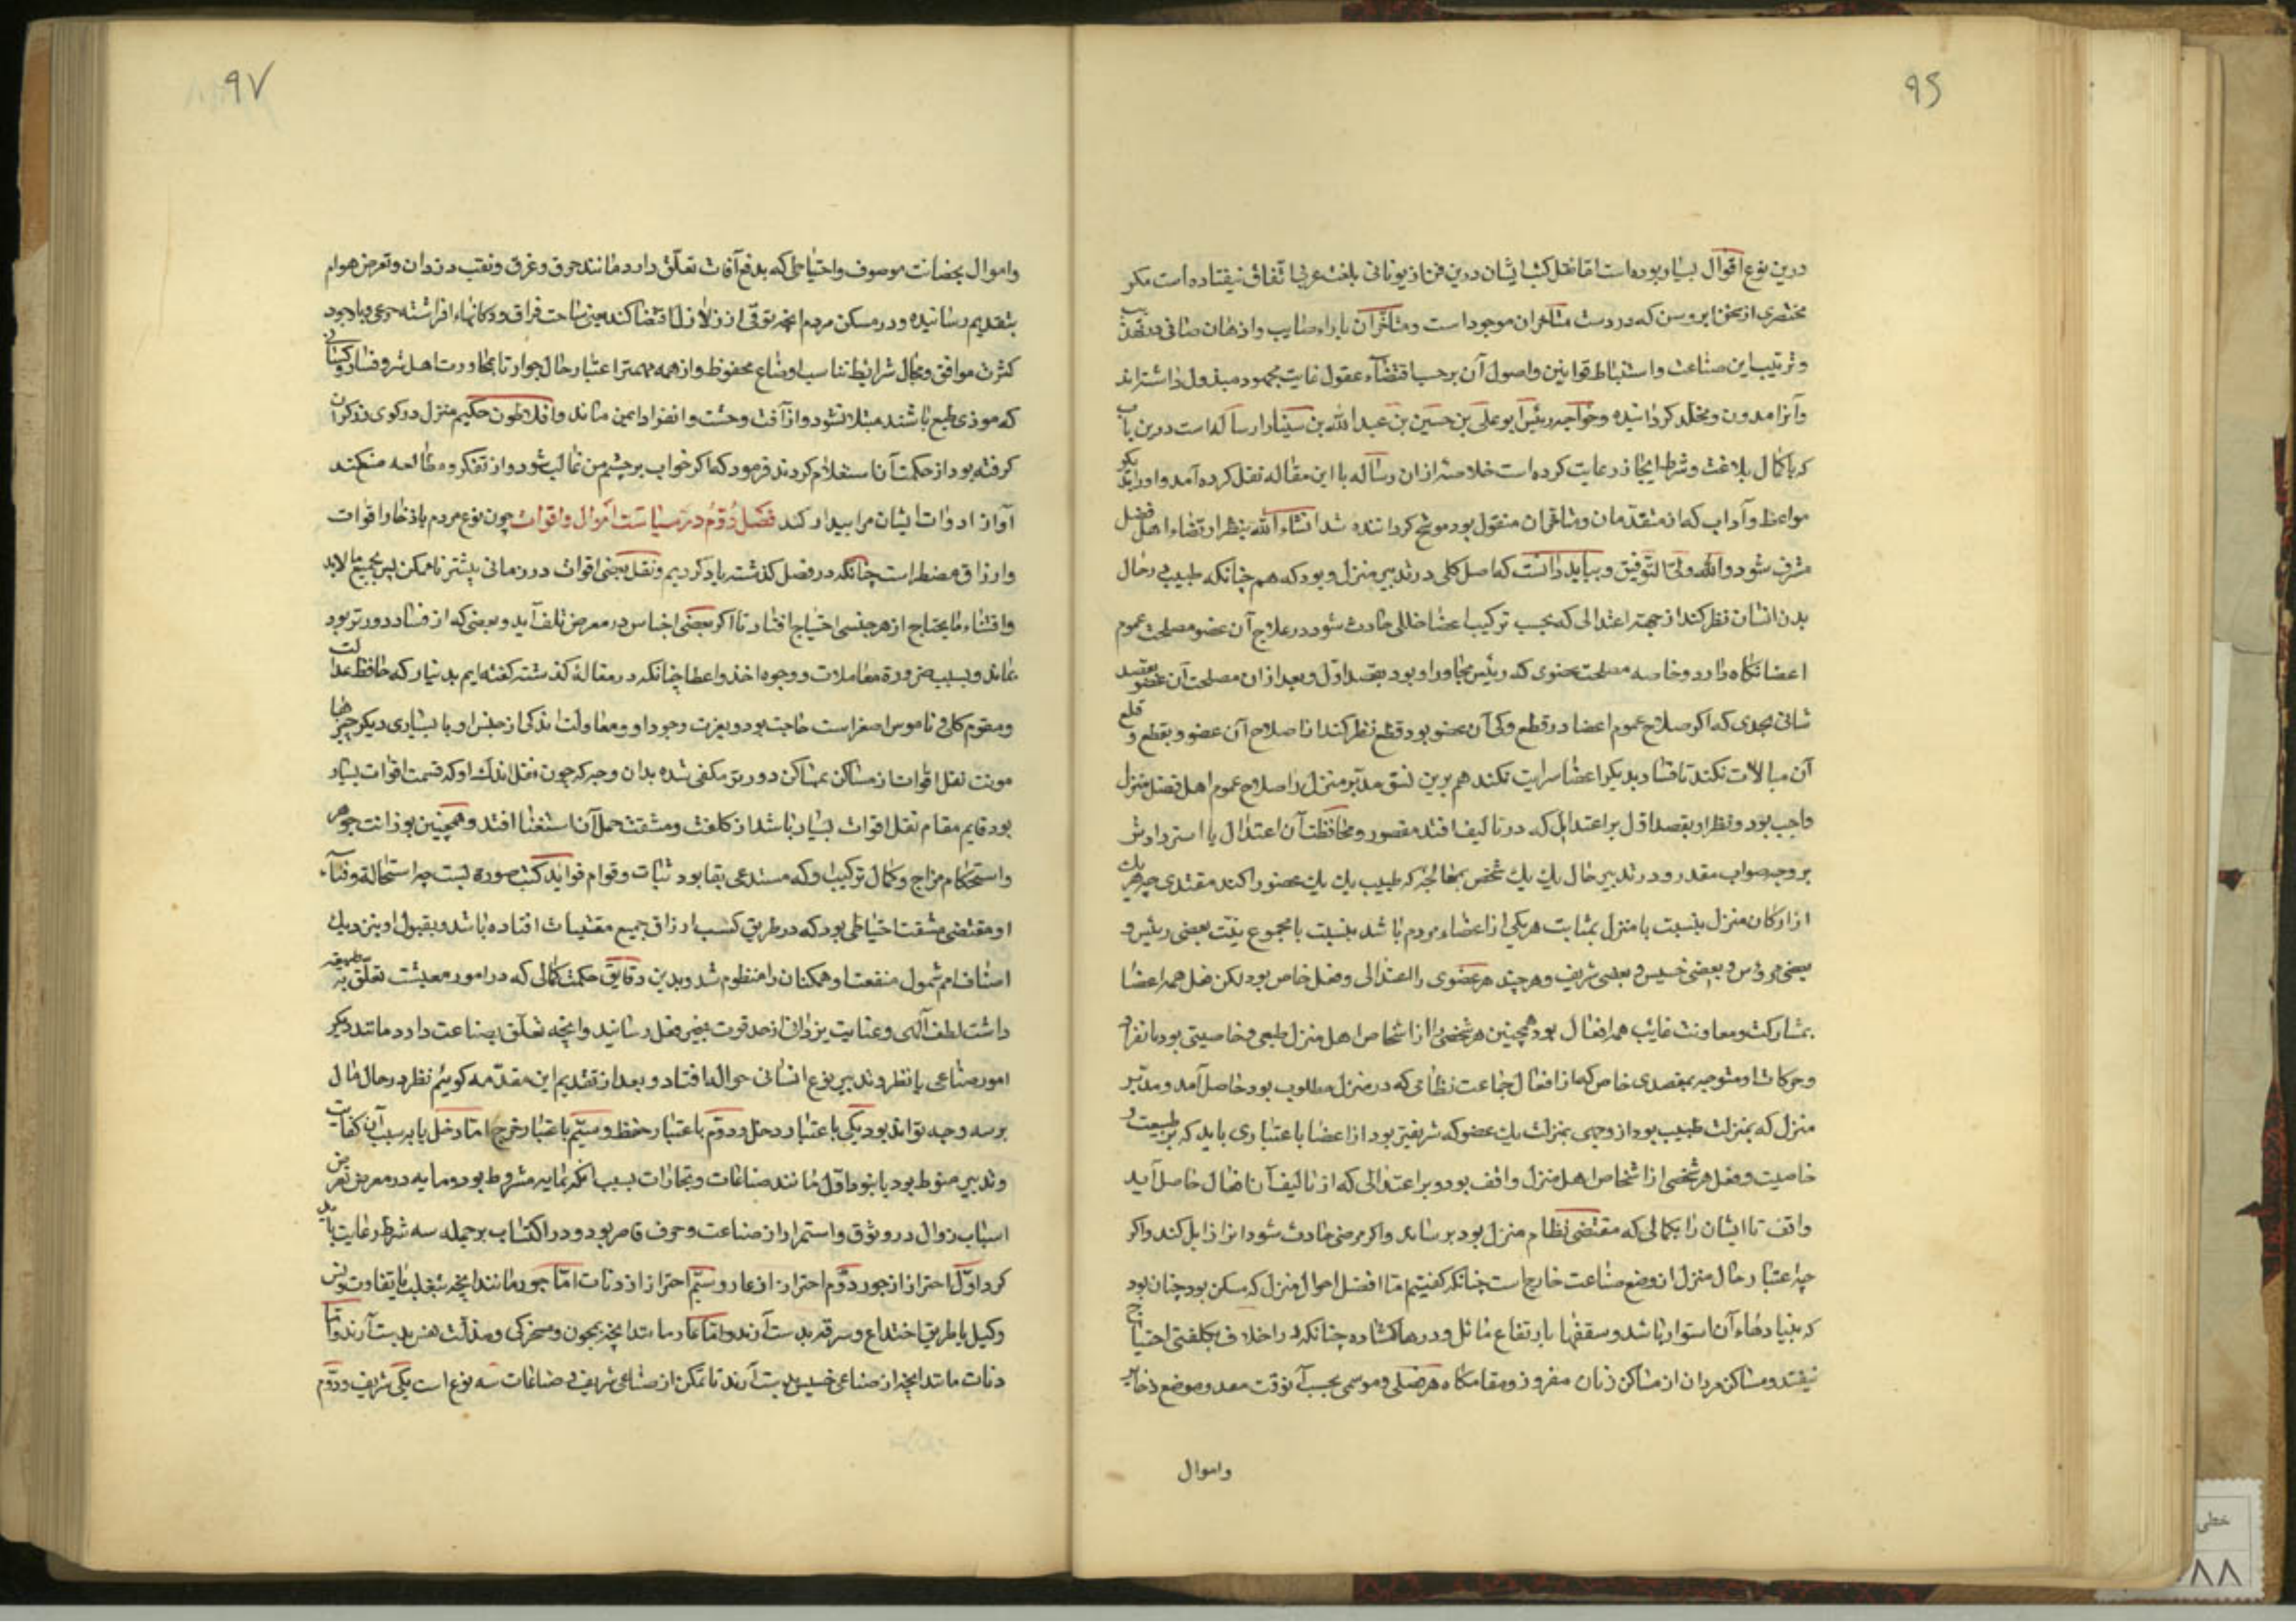 ۹۶
درین نوع اقوال بسیار بوده است اما نقل کتب ایشان درین فن از یونانی بلغت عربی اتفاق نیفتاده است مکر
مختصری از سخن ابروسن که در دست متاخران موجود است و متاخران باراء صایب و اذهان صافی در تهذیب
و ترتیب این صناعت و استنباط قوانین و اصول آن برحسب اقتضاء عقول غایت مجهود مبذول داشته اند
و آنرا مدون و مخلد کردانیده و خواجه رئیس ابو علی بن حسین بن عبدالله بن سینا را رساله است درین باب
که با کمال بلاغت و شرط ایجاز رعایت کرده است خلاصه از ان رساله با این مقاله نقل کرده آمد و اورا بدیکر
مواعظ و آداب که از متقدمان و متاخران منقول بود موشح کردانیده شد انشاء الله بنظر ارتضاء اهل فضل
مشرف شود والله ولی التوفیق و بباید دانست که اصل کلی در تدبیر منزل و بود که هم چنانکه طبیب در حال
بدن انسان نظر کند از جهة اعتدالی که بحسب ترکیب اعضا خللی حادث شود در علاج آن عضو مصلحت عموم
اعضا نکاه دارد و خاصه مصلحت عضوی که رئیس مجاور او بود بقصد اول و بعد از ان مصلحت آن عضو بقصد
ثانی بحدی که اکر صلاح عموم اعضا در قطع و کی آن عضو بود قطع نظر کند از اصلاح آن عضو و بقطع و قلع
آن مبالات نکند تا فساد بدیکر اعضا سرایت نکند هم برین نسق مدبر منزل را صلاح عموم اهل فضل منزل
واجب بود و نظر او بقصد اول بر اعتدال که در تالیف افتد مقصور و محافظت آن اعتدال یا استردادش
بر وجه صواب مقدر و در تدبیر حال یک یک شخص بمعالجه که طبیب یک یک عضو را کند مقتدی چه هر یک
از ارکان منزل بنسبت با منزل بمثابت هر یکی از اعضاء مردم باشد بنسبت با مجموع بنیت بعضی رئیس و
بعضی مروس و بعضی خسیس و بعضی شریف و هر چند هر عضوی را اعتدالی و فعل خاص بود لکن فعل همه اعضا
بمشارکت و معاونت غایب همه افعال بود همچنین هر شخصی را از اشخاص اهل منزل طبعی و خاصیتی بود بانفراد
و حرکات او متوجه بمقصدی خاص که از افعال جماعت نظامی که در منزل مطلوب بود حاصل آمد و مدبر
منزل که بمنزلت طبیب بود از وجهی بمنزلت یک عضو که شریفتر بود از اعضا باعتباری باید که بر طبیعت و
خاصیت و فعل هر شخصی از اشخاص اهل منزل واقف بود و بر اعتدالی که از تالیف آن افعال حاصل آید
واقف تا ایشان را بکمالی که مقتضی نظام منزل بود برساند و اکر مرضی حادث شود انرا زایل کند و اکر
چه اعتبار حال منزل از وضع صناعت خارج است چنانکه کفتیم اما افضل احوال منزل که مسکن بود چنان بود
که بنیادهاء آن استوار باشد و سقفها بارتفاع مائل و درها کشاده چنانکه در اختلاف بکلفتی احتیاج
نیفتد و مساکن مردان از مساکن زنان مفروز و مقامکاه هر فصلی و موسمی بحسب آنوقت معد و موضع ذخایر
واموال
۹۷
و اموال بحصانت موصوف و احتیاطی که بدفع آفات تعلق دارد مانند حرق و غرق و نقب دزدان و تعرض هوام
بتقدیم رسانیده و در مسکن مردم انچه توقی از زلازل اقتضا کند یعنی ساحت فراق و دکانهاء افراشته مرعی و با وجود
کثرت موافق و محال شرایط تناسب اوضاع محفوظ و از همه مهمتر اعتبار حال جوار تا بمجاورت اهل شر و فساد و کسانی
که موذی طبع باشند مبتلا نشود و از آفت وحشت و انفراد ایمن ماند و افلاطون حکیم منزل در کوی زرکران
کرفته بود از حکمت آن استعلام کردند فرمود که اکر خواب بر چشم من غالب شود و از تفکر و مطالعه منع کند
آواز ادوات ایشان مرا بیدار کند فصل دوم در سیاست اموال و اقوات چون نوع مردم باذخار اقوات
و ارزاق مضطر است چنانکه در فصل کذشته یاد کردیم و نقل بعضی اقوات در زمانی بیشتر ناممکن پس بجمیع مالابد
و اقتناء مایحتاج از هر جنسی احتیاج افتاد تا اکر بعضی اجناس در معرض تلف آید و بعضی که از فساد دورتر بود
بماند و بسبب ضرورة معاملات و وجوه اخذ و اعطا چنانکه در مقالهٔ کذشته کفته ایم بدینار که حافظ عدالت
و مقوم کلی و ناموس اصغر است حاجت بود و بعزت وجود او و معاولت اندکی از جنس او با بسیاری دیکر چیزها
مونت نقل اقوات از مساکن بمساکن دورتر مکفی شده بدان وجه که چون نقل اندک او که قیمت اقوات بسیار
بود قایم مقام نقل اقوات بسیار باشد از کلفت و مشقت حمل آن استغنا افتد و همچنین بوزانت جوهر
و استحکام مزاج و کمال ترکیب او که مستدعی بقا بود ثبات و قوام فواید مکتسب صورة بست چه استحاله و فناء
او مقتضی مشقت احتیاطی بود که در طریق کسب ارزاق جمیع مقتنیات افتاده باشد و بقبول او بنزدیک
اصناف امم شمول منفعت او همکنان را منظوم شد و بدین دقایق حکمت کمالی که در امور معیشت تعلق بطبیعت
داشت لطف الهی و عنایت یزدانی از حد قوت بحیز فعل رسانید و انچه تعلق بصناعت دارد مانند دیکر
امور صناعی با نظر و تدبیر نوع انسانی حواله افتاد و بعد از تقدیم این مقدمه کوئیم نظر در حال مال
بر سه وجه تواند بود یکی باعتبار دخل و دوم باعتبار حفظ و سیم باعتبار خرج اما دخل یا بر سبب آن کفایت
و تدبیر منوط بود یا نبود اول مانند صناعات و تجارات بسبب انکه بمایه مشروط بود و مایه در معرض تعرض
اسباب زوال در وثوق و استمرار از صناعت و حرف قاصر بود و در اکتساب بر جمله سه شرط رعایت باید
کرد اول احتراز از جور دوم احتراز از عار و سیم احتراز از دنائت اما جور مانند انچه بتغلب یا تفاوت وزن
و کیل یا طریق اختداع و سرقه بدست آرند و اما عار مانند انچه بمجون و مسخرکی و مذلت نفس بدست آرند و اما
دنائت مانند انچه از صناعتی خسیس بدست آرند با تمکن از صناعتی شریف و صناعات سه نوع است یکی شریف و دوم
خطی
۸۸